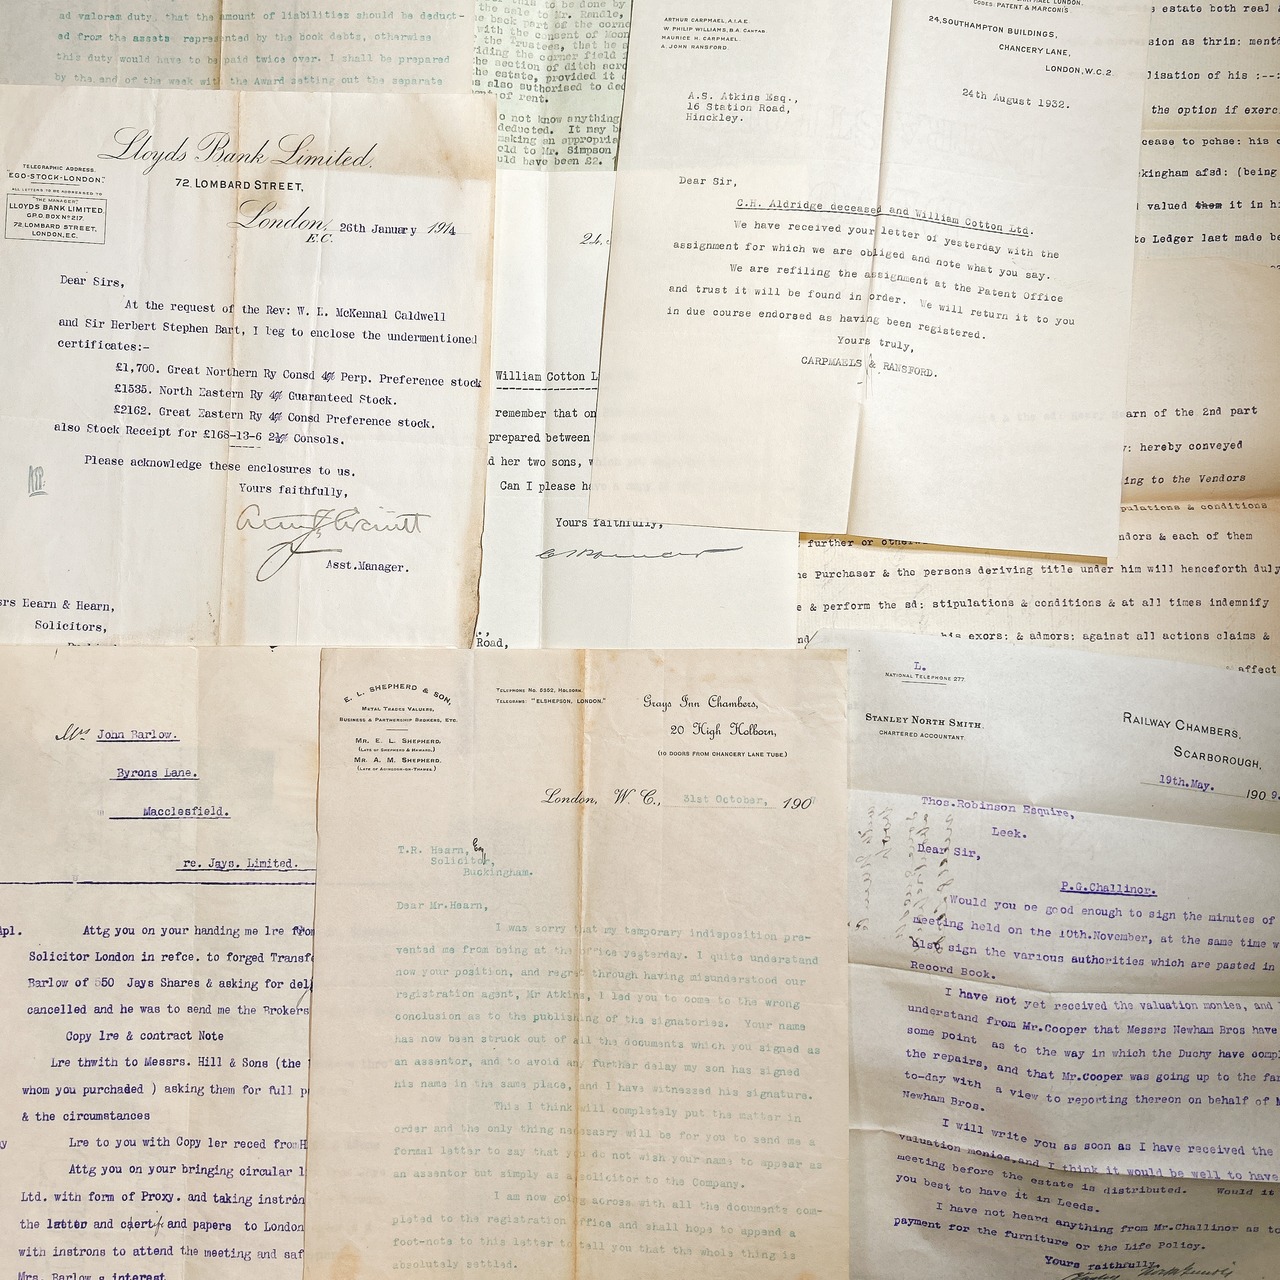 ad valorem duty, that the amount of liabilities should be deduct-
ed from the assets represented by the book debts, otherwise
this duty would have to be paid twice over. I shall be prepared
by the end of the week with the Award setting out the separate
this to be done by
the sale to Mr. Randle,
back part of the corne
with the consent of Moon
the Trustees, that he a
iding the corner field
the section of ditch acro
the estate, provided it
s also authorised to ded
of rent.
o not know anything
deducted. It may b
making an appropria
ld to Mr. Simpson
uld have been £2. 1
Lloyds Bank Limited.
72, LOMBARD STREET,
London,
E.C.
26th January 1914
TELEGRAPHIC ADDRESS.
"EGO-STOCK-LONDON."
ALL LETTERS TO BE ADDRESSED TO
"THE MANAGER"
LLOYDS BANK LIMITED.
G.P.O. BOX No 217.
72, LOMBARD STREET,
LONDON, E.C.
Dear Sirs,
At the request of the Rev: W. L. McKennal Caldwell
and Sir Herbert Stephen Bart, I beg to enclose the undermentioned
certificates:-
£1,700. Great Northern Ry Consd 4% Perp. Preference stock
£1535. North Eastern Ry 4% Guaranteed Stock.
£2162. Great Eastern Ry 4% Consd Preference stock.
also Stock Receipt for £168-13-6 2½% Consols.
Please acknowledge these enclosures to us.
Yours faithfully,
Asst.Manager.
srs Hearn & Hearn,
Solicitors,
William Cotton L
remember that on
prepared between
d her two sons, w
Can I please ha
Yours faithfully,
Road,
ARTHUR CARPMAEL, A.I.A.E.
W. PHILIP WILLIAMS, B.A. CANTAB.
MAURICE H. CARPMAEL.
A. JOHN RANSFORD.
CODES: PATENT & MARCONI'S
24, SOUTHAMPTON BUILDINGS,
CHANCERY LANE,
LONDON, W.C.2.
24th August 1932.
A.S. Atkins Esq.,
16 Station Road,
Hinckley.
Dear Sir,
C.H. Aldridge deceased and William Cotton Ltd.
We have received your letter of yesterday with the
assignment for which we are obliged and note what you say.
We are refiling the assignment at the Patent Office
and trust it will be found in order. We will return it to you
in due course endorsed as having been registered.
Yours truly,
CARPMAELS & RANSFORD.
s estate both real
sion as thrin: ment
lisation of his :--
the option if exerc
cease to pchse: his
kingham afsd: (being
valued them it in hi
te Ledger last made be
earn of the 2nd part
y: hereby conveyed
ing to the Vendors
pulations & conditions
ndors & each of them
further or otherw
e Purchaser & the persons deriving title under him will henceforth duly
e & perform the sd: stipulations & conditions & at all times indemnify
nd his exors: & admors: against all actions claims &
affect
Mrs John Barlow.
Byrons Lane.
Macclesfield.
re. Jays. Limited.
Apl. Attg you on your handing me lre from
Solicitor London in refce. to forged Transf
Barlow of 550 Jays Shares & asking for del
cancelled and he was to send me the Brokers
Copy lre & contract Note
Lre thwith to Messrs. Hill & Sons (the
whom you purchaded ) asking them for full p
& the circumstances
Lre to you with Copy ler reced from H
Attg you on your bringing circular l
Ltd. with form of Proxy. and taking instrón
the latter and cœrtf and papers to London
with instrons to attend the meeting and saf
Mrs. Barlow s interest
E. L. SHEPHERD & SON,
METAL TRADES VALUERS,
BUSINESS & PARTNERSHIP BROKERS, ETC.
MR. E. L. SHEPHERD.
(LATE OF SHEPHERD & HEWARD.)
MR. A. M. SHEPHERD.
(LATE OF ABINGDON-ON-THAMES.)
TELEPHONE No. 5352, HOLBORN.
TELEGRAMS: "ELSHEPSON, LONDON."
Grays Inn Chambers,
20 High Holborn,
(10 DOORS FROM CHANCERY LANE TUBE.)
London, W. C., 31st October, 190
T.R. Hearn, Esq
Solicitor,
Buckingham.
Dear Mr.Hearn,
I was sorry that my temporary indisposition pre-
vented me from being at the office yesterday. I quite understand
now your position, and regret through having misunderstood our
registration agent, Mr Atkins, I led you to come to the wrong
conclusion as to the publishing of the signatories. Your name
has now been struck out of all the documents which you signed as
an assentor, and to avoid any further delay my son has signed
his name in the same place, and I have witnessed his signature.
This I think will completely put the matter in
order and the only thing necessary will be for you to send me a
formal letter to say that you do not wish your name to appear as
an assentor but simply as a solicitor to the Company.
I am now going across with all the documents com-
pleted to the registration office and shall hope to append a
foot-note to this letter to tell you that the whole thing is
absolutely settled.
L.
NATIONAL TELEPHONE 277.
STANLEY NORTH SMITH.
CHARTERED ACCOUNTANT.
RAILWAY CHAMBERS,
SCARBOROUGH,
19th.May. 1909.
Thos.Robinson Esquire,
Leek.
Dear Sir,
P.G.Challinor.
Would you be good enough to sign the minutes of
meeting held on the 10th.November, at the same time w
also sign the various authorities which are pasted in
Record Book.
I have not yet received the valuation monies, and
understand from Mr.Cooper that Messrs Newham Bros have
some point as to the way in which the Duchy have compl
the repairs, and that Mr.Cooper was going up to the far
to-day with a view to reporting thereon on behalf of M
Newham Bros.
I will write you as soon as I have received the
valuation monies,and I think it would be well to have
meeting before the estate is distributed. Would it
you best to have it in Leeds.
I have not heard anything from Mr.Challinor as to
payment for the furniture or the Life Policy.
Yours faithfully,